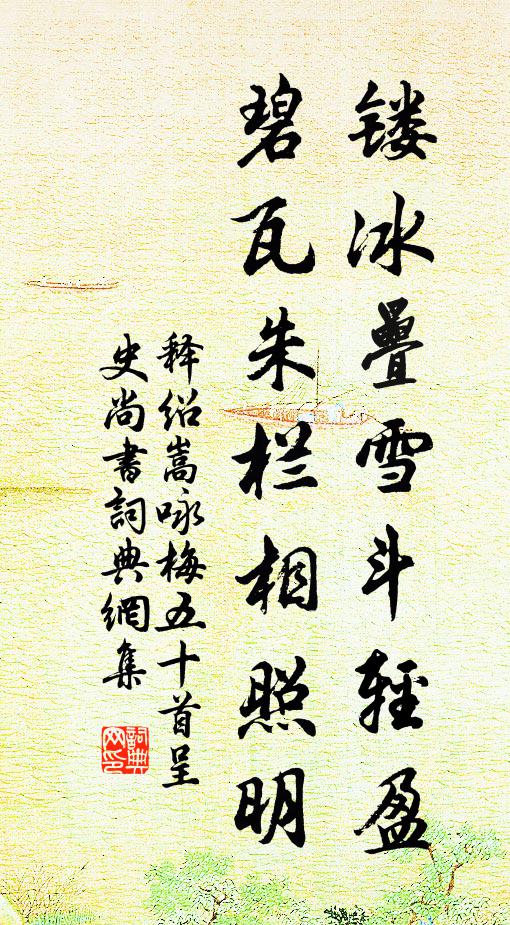 镂冰疊雪斗轻盈
碧瓦朱栏相照明
释绍嵩咏梅五十首呈
史尚書詞典網集
詞典
网印